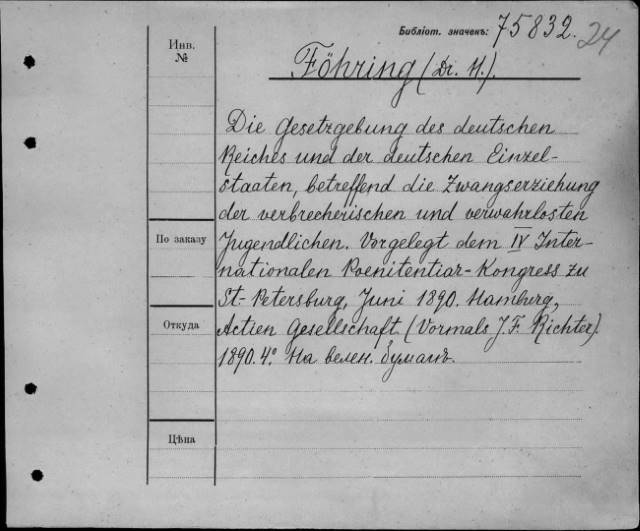 Библіот. значекъ: 75832. 24
Инв.
№
Föhring (Dr. H.).
Die Gesetzgebung des deutschen
Reiches und der deutschen Einzel-
staaten, betreffend die Zwangserziehung
der verbrecherischen und verwahrlosten
По заказу
Jugendlichen. Vorgelegt dem IV Inter-
nationalen Poenitentiar-Kongress zu
St-Petersburg, Juni 1890. Hamberg,
Откуда
Actien Gesellschaft (Vormals J. F. Richter).
1890. 4º. На велен. бумагѣ.
Цѣна